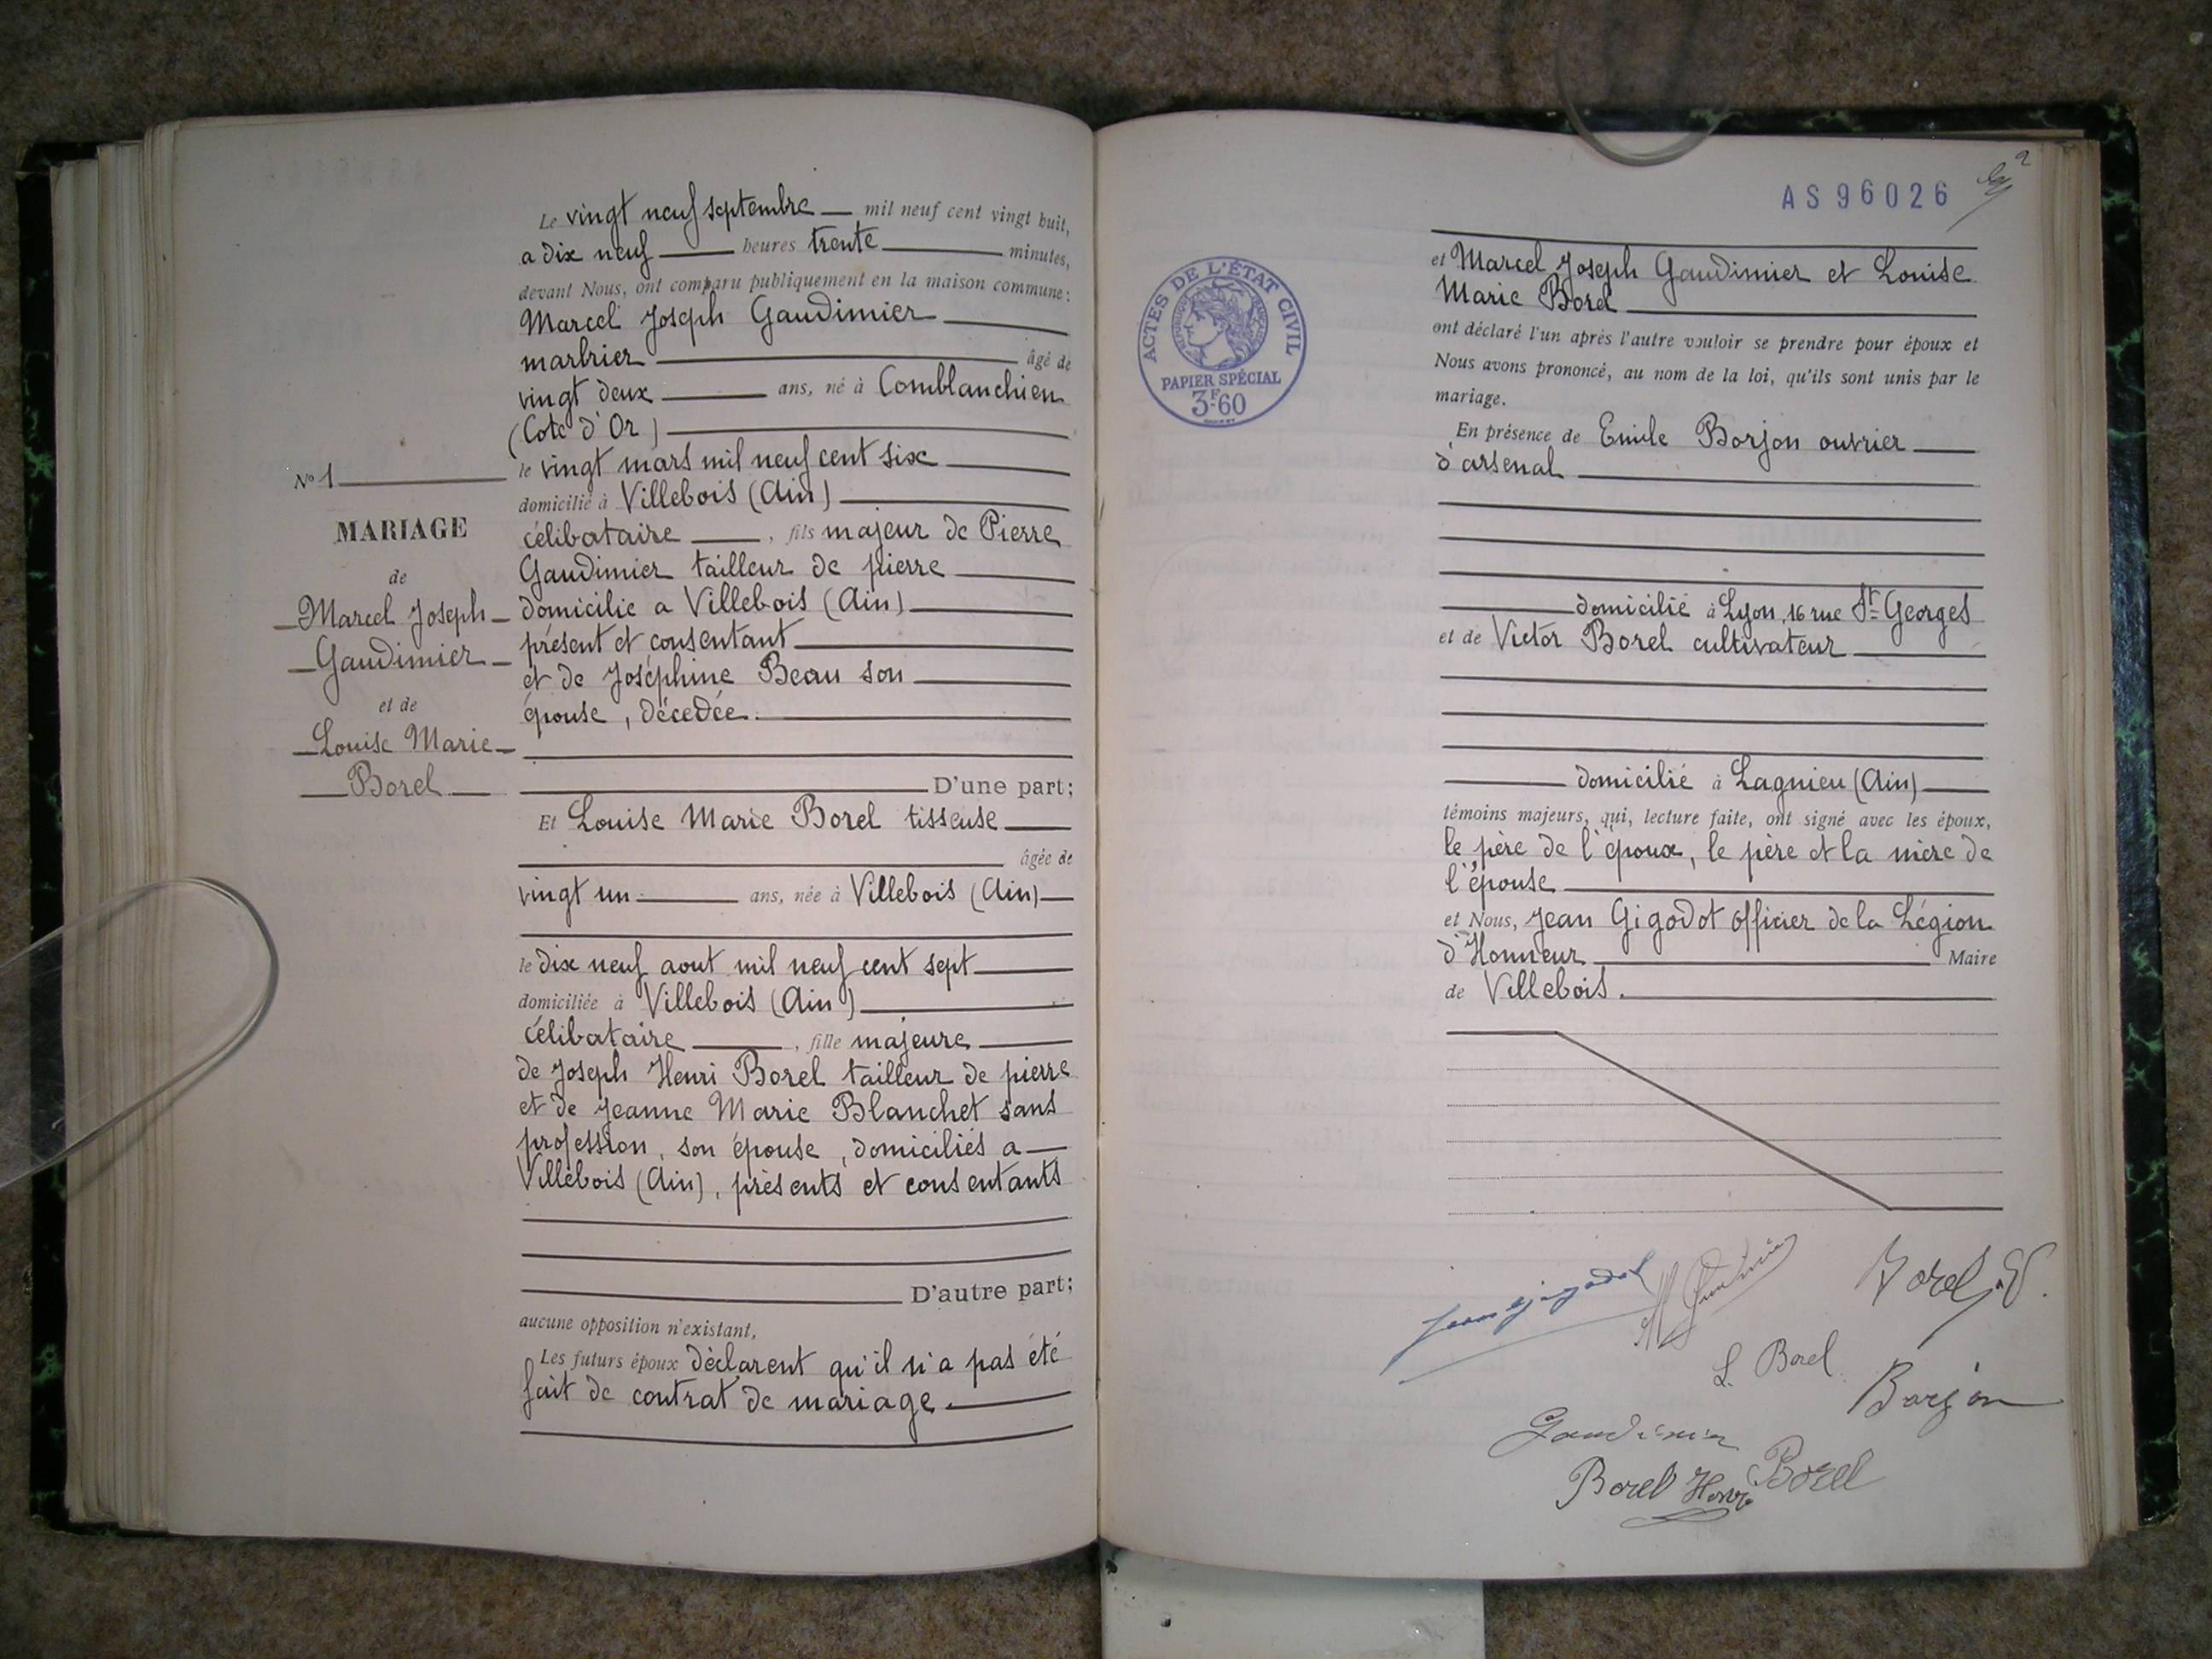 Le vingt neuf septembre mil neuf cent vingt huit,
a dix neuf heures trente minutes,
devant Nous, ont comparu publiquement en la maison commune:
Marcel Joseph Gaudimier
marbrier âgé de
vingt deux ans, né à Comblanchien
(Cote d'Or)
le vingt mars mil neuf cent six
domicilié à Villebois (Ain)
célibataire, fils majeur de Pierre
Gaudimier tailleur de pierre
domicilie a Villebois (Ain)
présent et consentant
et de Joséphine Beau son
épouse, décedée.
D'une part;
Et Louise Marie Borel tisseuse
âgée de
vingt un ans, née à Villebois (Ain)
le dix neuf aout mil neuf cent sept
domiciliée à Villebois (Ain)
célibataire, fille majeure
de Joseph Henri Borel tailleur de pierre
et de Jeanne Marie Blanchet sans
profession, son épouse, domiciliés a
Villebois (Ain), présents et consentants
D'autre part;
aucune opposition n'existant,
Les futurs époux déclarent qu'il n'a pas été
fait de contrat de mariage.
No 1
MARIAGE
de
Marcel Joseph
Gaudimier
et de
Louise Marie
Borel
AS 96026
2
ACTES DE L'ÉTAT CIVIL
PAPIER SPÉCIAL
3F60
et Marcel Joseph Gaudimier et Louise
Marie Borel
ont déclaré l'un après l'autre vouloir se prendre pour époux et
Nous avons prononcé, au nom de la loi, qu'ils sont unis par le
mariage.
En présence de Emile Borjon ouvrier
d'arsenal
domicilié à Lyon, 16 rue St Georges
et de Victor Borel cultivateur
domicilié à Lagnieu (Ain)
témoins majeurs, qui, lecture faite, ont signé avec les époux,
le père de l'époux, le père et la mère de
l'épouse
et Nous, Jean Gigodot officier de la Légion
d'Honneur Maire
de Villebois.
Borel V.
L. Borel
Borjon
Gaudimier
Borel Henri Borel